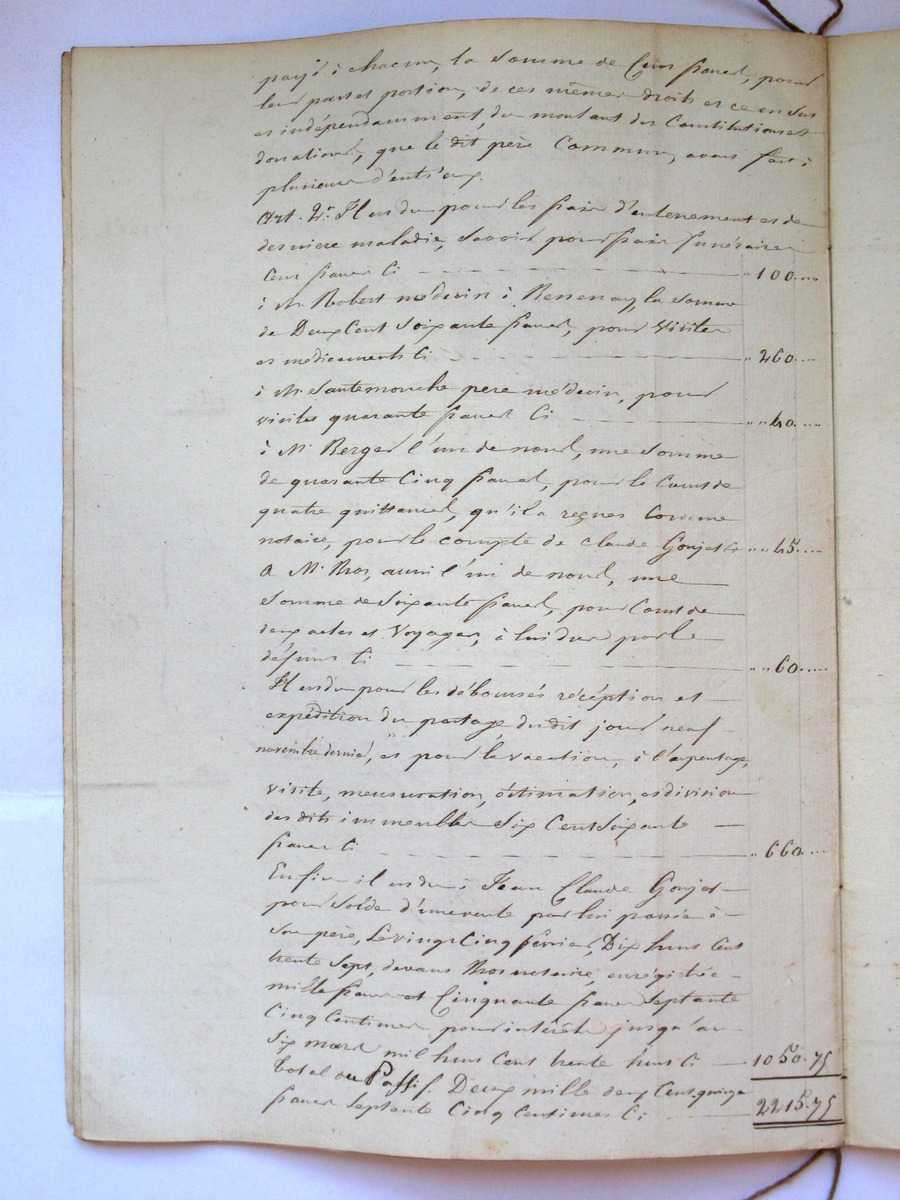 payé à chacun, la somme de Cent francs, pour
leur part et portion, de ces mêmes droits et ce en sus
et indépendamment, du montant des Constitutions et
donations, que le dit père Commun, avait fait à
plusieurs d'entr'eux.
Art. 2e. Il est du pour les frais d'enterrement et de
dernière maladie, Savoir pour frais funéraires
Cent francs Ci — 100
à Mr. Robert médecin à Bessenay, la somme
de Deux Cent Soixante francs, pour Visites
et médicaments Ci — 260
à Mr. Santemouche pere médecin, pour
visites quarante francs Ci — 40
à Mr. Berger l'un de nous, une somme
de quarante Cinq francs, pour le Cout de
quatre quittances, qu'il a reçues Comme
notaire, pour le compte de Claude Gonjet Ci 45
A Mr. Bros, aussi l'un de nous, une
Somme de Soixante francs, pour Cout de
deux actes et Voyages, à lui dus par le
défunt Ci — 60
Il est du pour les déboursés réception et
expédition du partage dudit jour neuf
novembre dernier, et pour la vacation, à l'arpentage,
visite, mensuration, éstimation, et division
des dits immeubles Six Cent Soixante —
francs Ci — 660
Enfin il est du à Jean Claude Gonjet
pour Solde d'une vente par lui passée à
Son père, Le vingt Cinq février, Dix huit Cent
trente Sept, devant Bros notaire, enrégistrée
mille francs et Cinquante francs Septante
Cinq Centimes pour intérêts jusqu'au
Six mars mil huit Cent trente huit Ci — 1050.75
Total du Passif. Deux mille deux Cent quinze
francs Septante Cinq Centimes Ci — 2215.75